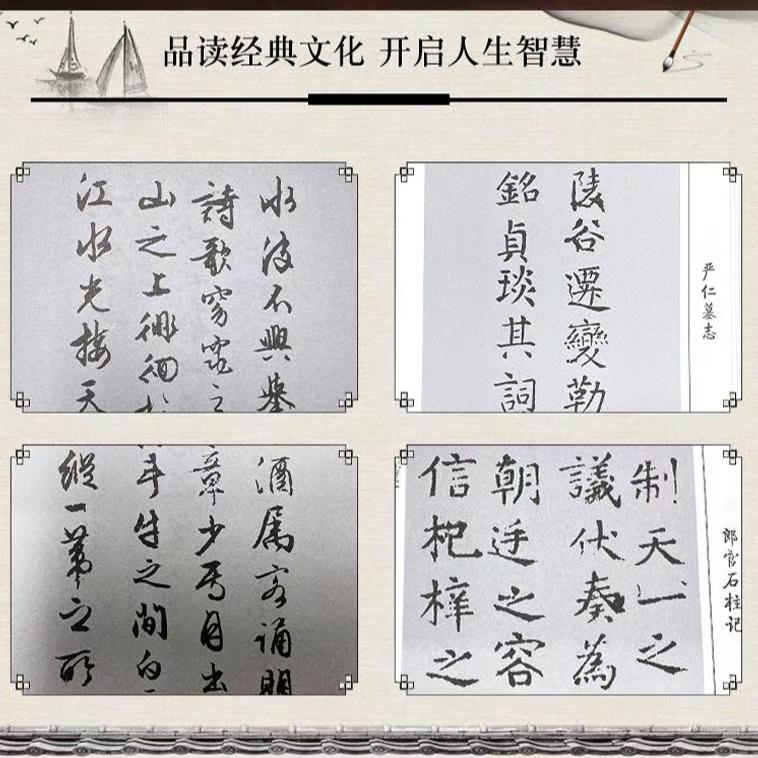 品读经典文化 开启人生智慧
水波不興舉
詩歌窈窕之
山之上徘徊於
江水光接天
陵谷遷變勒
銘貞琰其詞
严仁墓志
酒属客诵明
章少焉月出
斗牛之間白
縱一葦之所
制天一之
議伏奏為
朝廷之容
信杞梓之
郎官石柱记